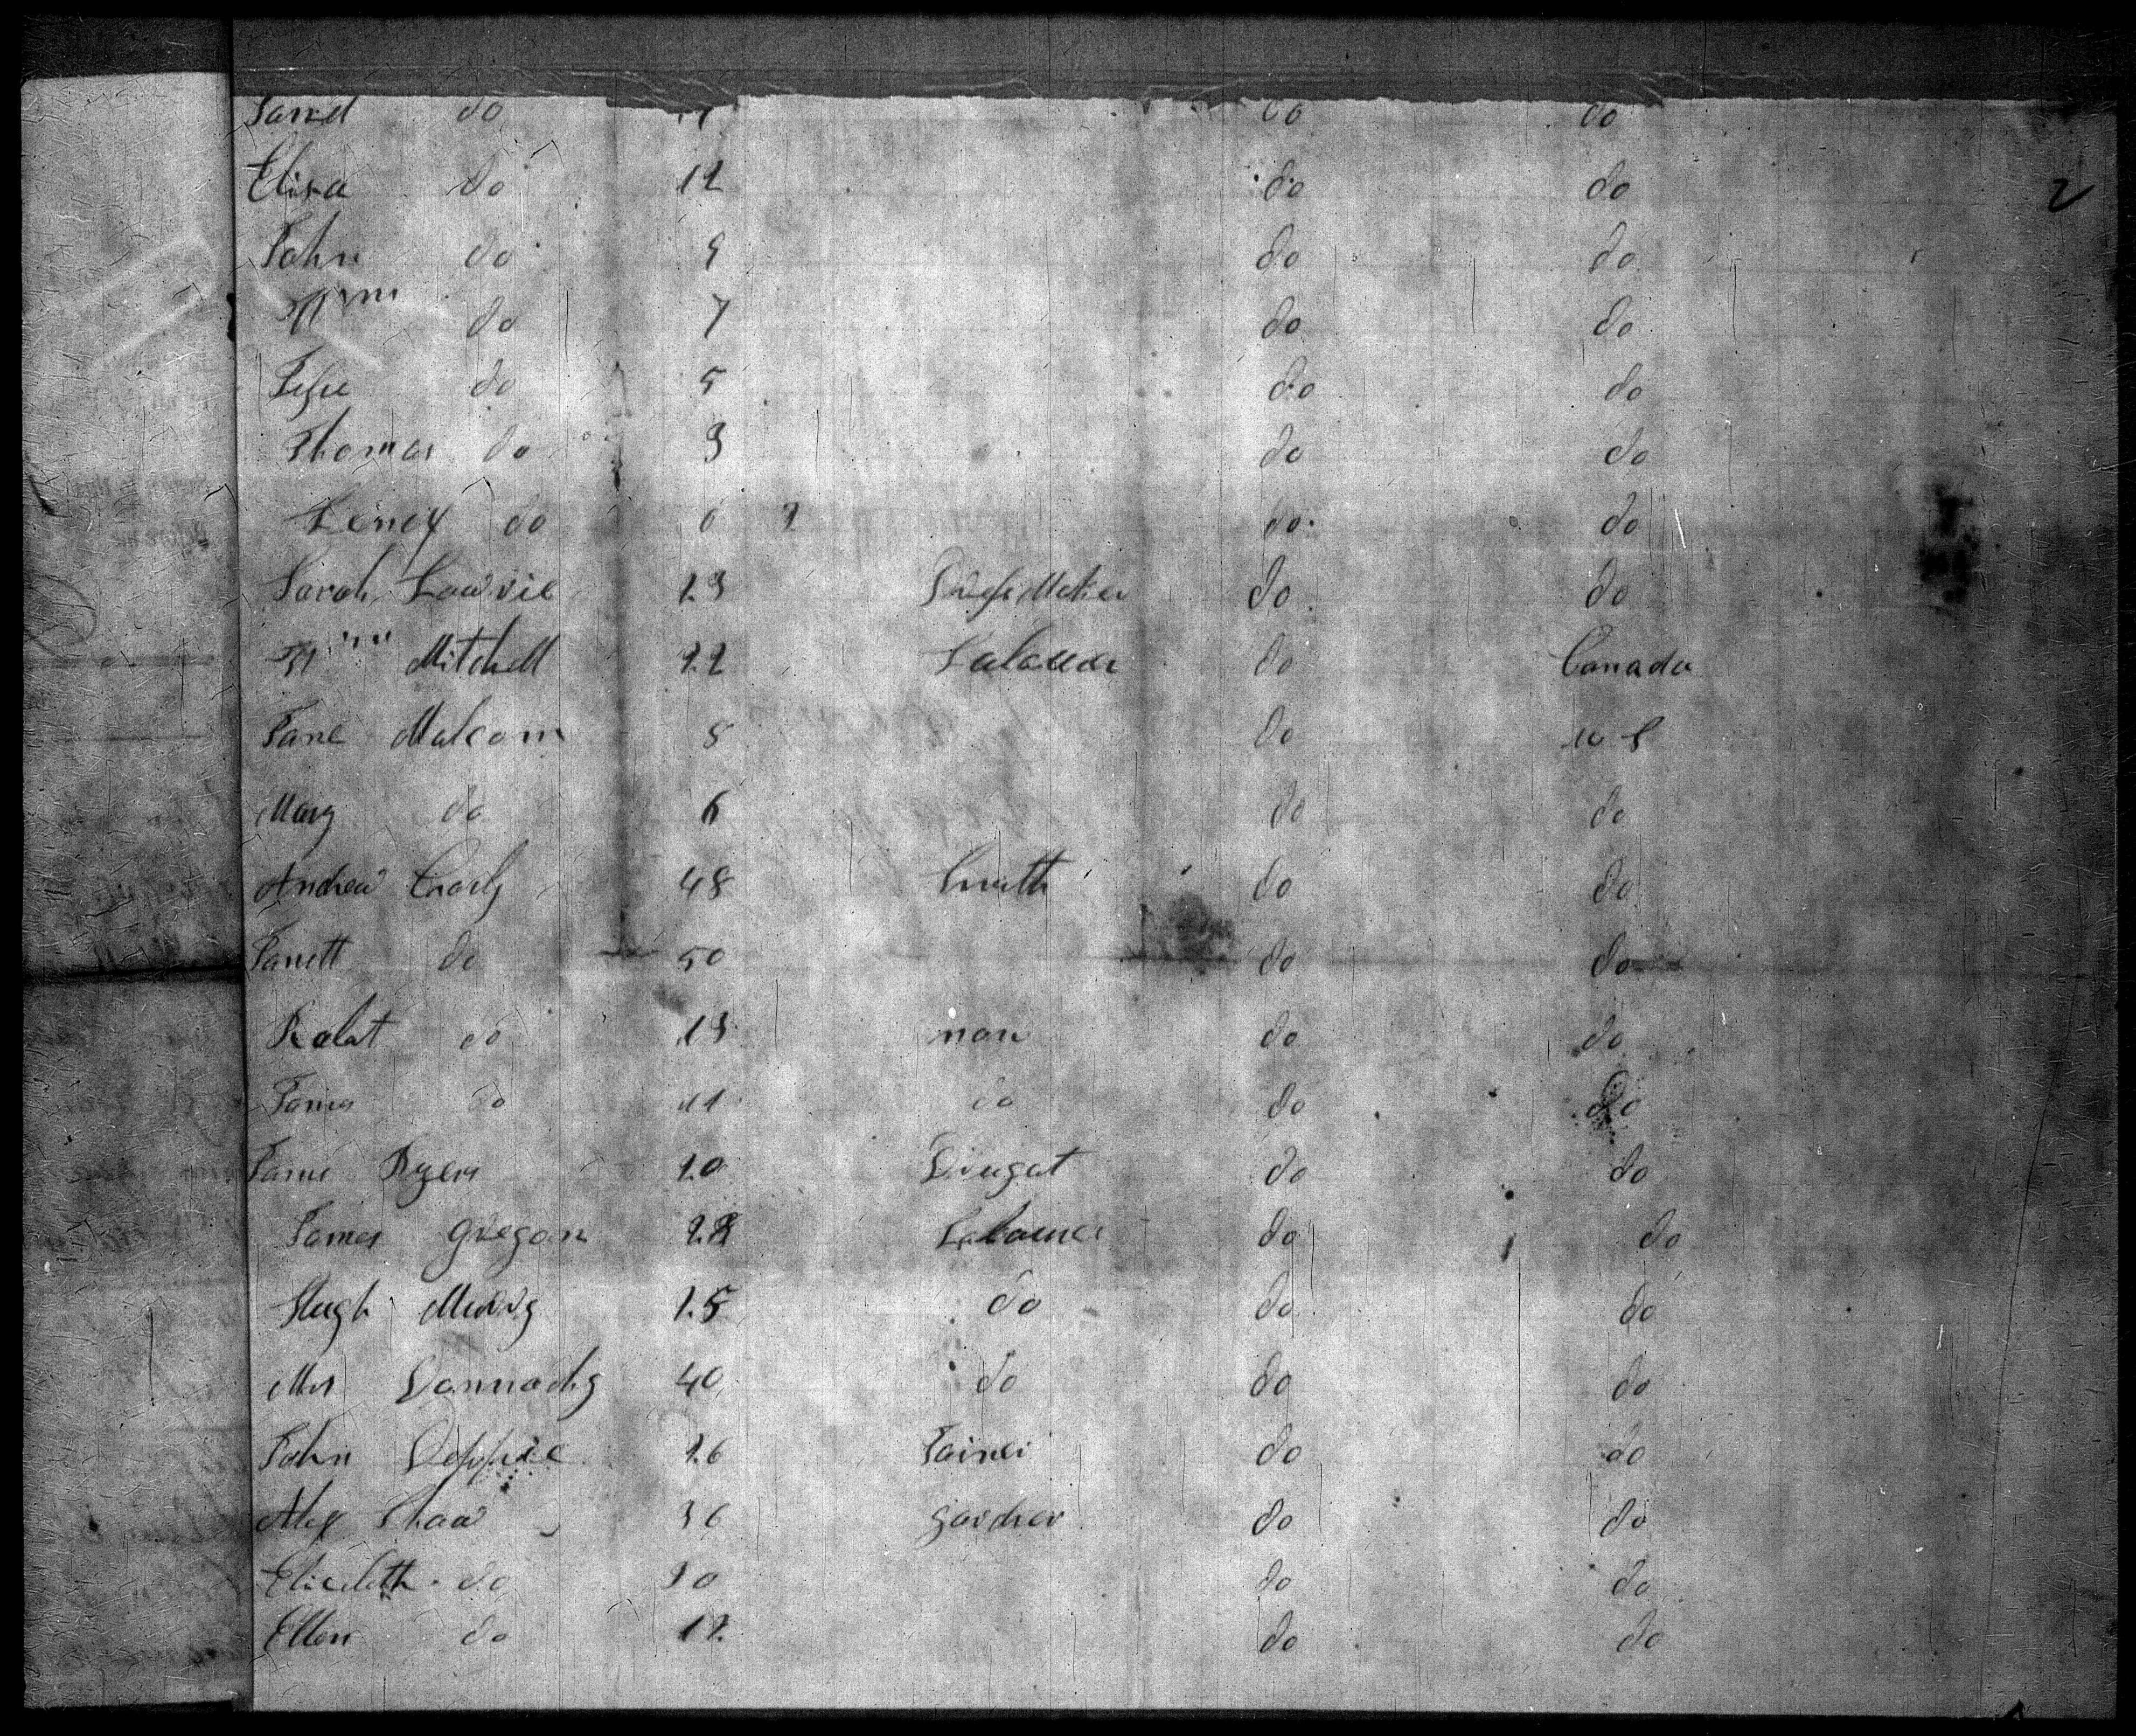 do do do
Eliza do 12 do do 2
John do 9 do do
Wm do 7 do do
do 5 do do
Thomas do 3 do do
do 0 do do
Sarah Lowrie 23 do do
Wm Mitchell 22 Labauer do Canada
Jane Malcom 8 do U S
Mary do 6 do do
Andrew 48 Smith do do
Janett do 50 do do
Robat do 13 non do do
James do 11 do do do
Byers 20 do do
James Gregan Labauer do do
Hugh 25 do do do
Mrs Donnachy 40 do do do
John 26 Joiner do do
Alex Shaw 36 gardner do do
Elizabeth do 30 do do
Ellen do 12 do do